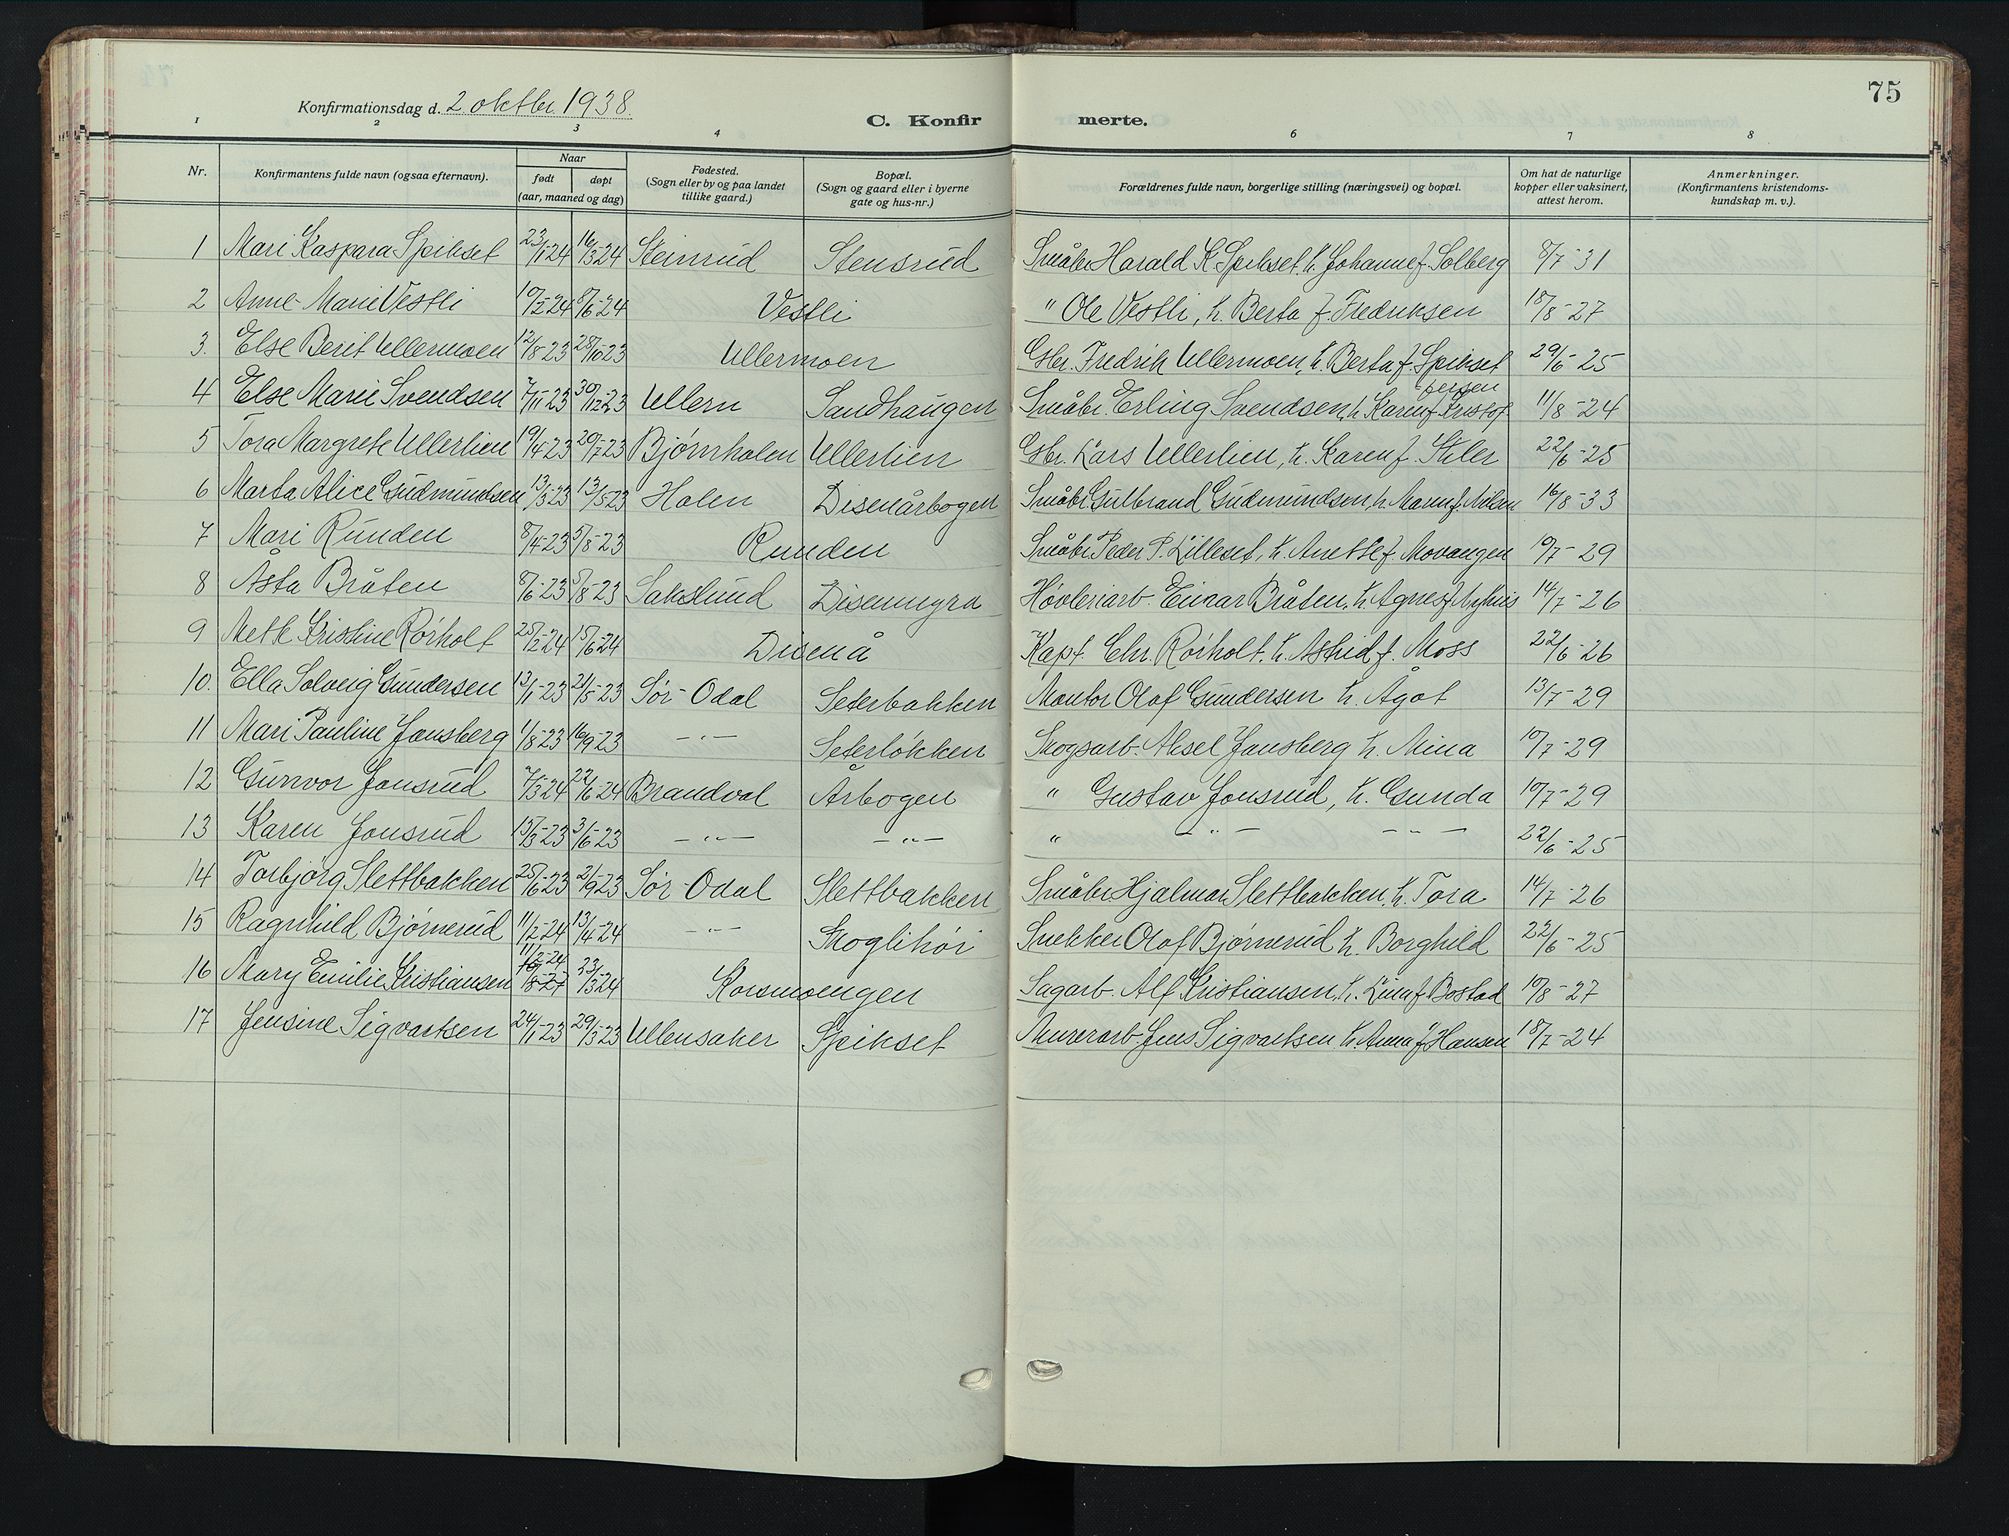 75
Konfirmationsdag d. 2. oktbr. 1938.
C. Konfirmerte.
1 2 3 4 5 6 7 8
Nr. Konfirmantens fulde navn (ogsaa efternavn). Naar født døpt (aar, maaned og dag) Fødested. (Sogn eller by og paa landet tillike gaard.) Bopæl. (Sogn og gaard eller i byerne gate og hus-nr.) Forældrenes fulde navn, borgerlige stilling (næringsvei) og bopæl. Om hat de naturlige kopper eller vaksinert, attest herom. Anmerkninger. (Konfirmantens kristendomskundskap m. v.).
1 Mari Kaspara Spikset 23/1-24 16/3-24 Steinrud Stensrud Småbr. Harald K. Spikset, h. Johanne f. Solberg 8/7-31
2 Anne Marie Vestli 10/2-24 8/6-24 Vestli " Ole Vestli, h. Berta f. Fredriksen 18/8-27
3. Else Berit Ullermoen 12/8-23 28/10-23 Ullermoen Gbr. Fredrik Ullermoen, h. Berta f. Spikset 29/6-25
4 Else Marie Svendsen 7/11-23 30/12-23 Ullern Sandhaugen Småbr. Erling Svendsen, h. Karen f. Kristoffersen 11/8-24
5 Tora Margrete Ullerlien 19/4-23 29/7-23 Bjørnholen Ullerlien Gbr. Lars Ullerlien, h. Karen f. Skler 22/6-25
6 Marta Alice Gudmundsen 13/3-23 13/5-23 Holen Disenårbogen Småbr. Gulbrand Gudmundsen, h. Maren f. Nilsen 16/8-33
7 Mari Runden 8/4-23 5/8-23 Runden Småbr. Peder P. Lilleset, h. Anette f. Movangen 10/7-29
8 Asta Bråten 8/6-23 5/8-23 Sakslund Disenengra Høvleriarb. Einar Bråten, h. Agnes f. 14/7-26
9 Mette Kristine Rörholt 25/2-24 15/6-24 Disenå Kapt. Chr. Rörholt. h. Astrid f. Moss 22/6-26
10. Ella Solveig Gundersen 13/1-23 21/5-23 Sør-Odal Seterbakken Montør Olaf Gundersen h. Ågot 13/7-29
11 Mari Pauline Jonsberg 1/8-23 16/9-23 -"- Seterløkken Skogsarb. Aksel Jonsberg h. Mina 10/7-29
12 Gunvor Jonsrud 7/3-24 22/6-24 Brandval Årbogen " Gustav Jonsrud, h. Gunda 10/7-29
13 Karen Jonsrud 15/3-23 3/6-23 -"- -"- " -"- -"- 22/6-25
14 Torbjørg Slettbakken 25/6-23 2/9-23 Sør-Odal Slettbakken Småbr. Hjalmar Slettbakken, h. Tora 14/7-26
15 Ragnhild Bjørnerud 11/2-24 13/4-24 -"- Skoglihøi Snekker Olaf Bjørnerud h. Borghild 22/6-25
11/2-24
16 Mary Emilie Kristiansen 10/8-27 23/3-24 Korsmoengen Sagarb. Alf Kristiansen, h. Linn f. Bostad 10/8-27
17 Jensine Sigvartsen 24/1-23 29/3-23 Ullensaker Spikset Murerarb. Jens Sigvartsen h. Anna f. Hansen 18/7-24